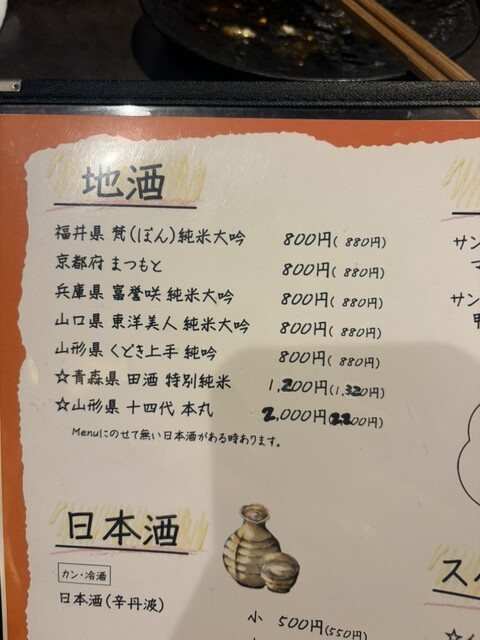 地酒
福井県 梵(ぼん)純米大吟 800円( 880円)
京都府 まつもと 800円( 880円)
兵庫県 富誉咲 純米大吟 800円( 880円)
山口県 東洋美人 純米大吟 800円( 880円)
山形県 くどき上手 純吟 800円( 880円)
☆青森県 田酒 特別純米 1,200円(1,320円)
☆山形県 十四代 本丸 2,000円(2200円)
Menuにのせて無い日本酒がある時あります。
日本酒
カン・冷酒
日本酒(辛丹波)
小 500円(550円)
サン
サン
スパ